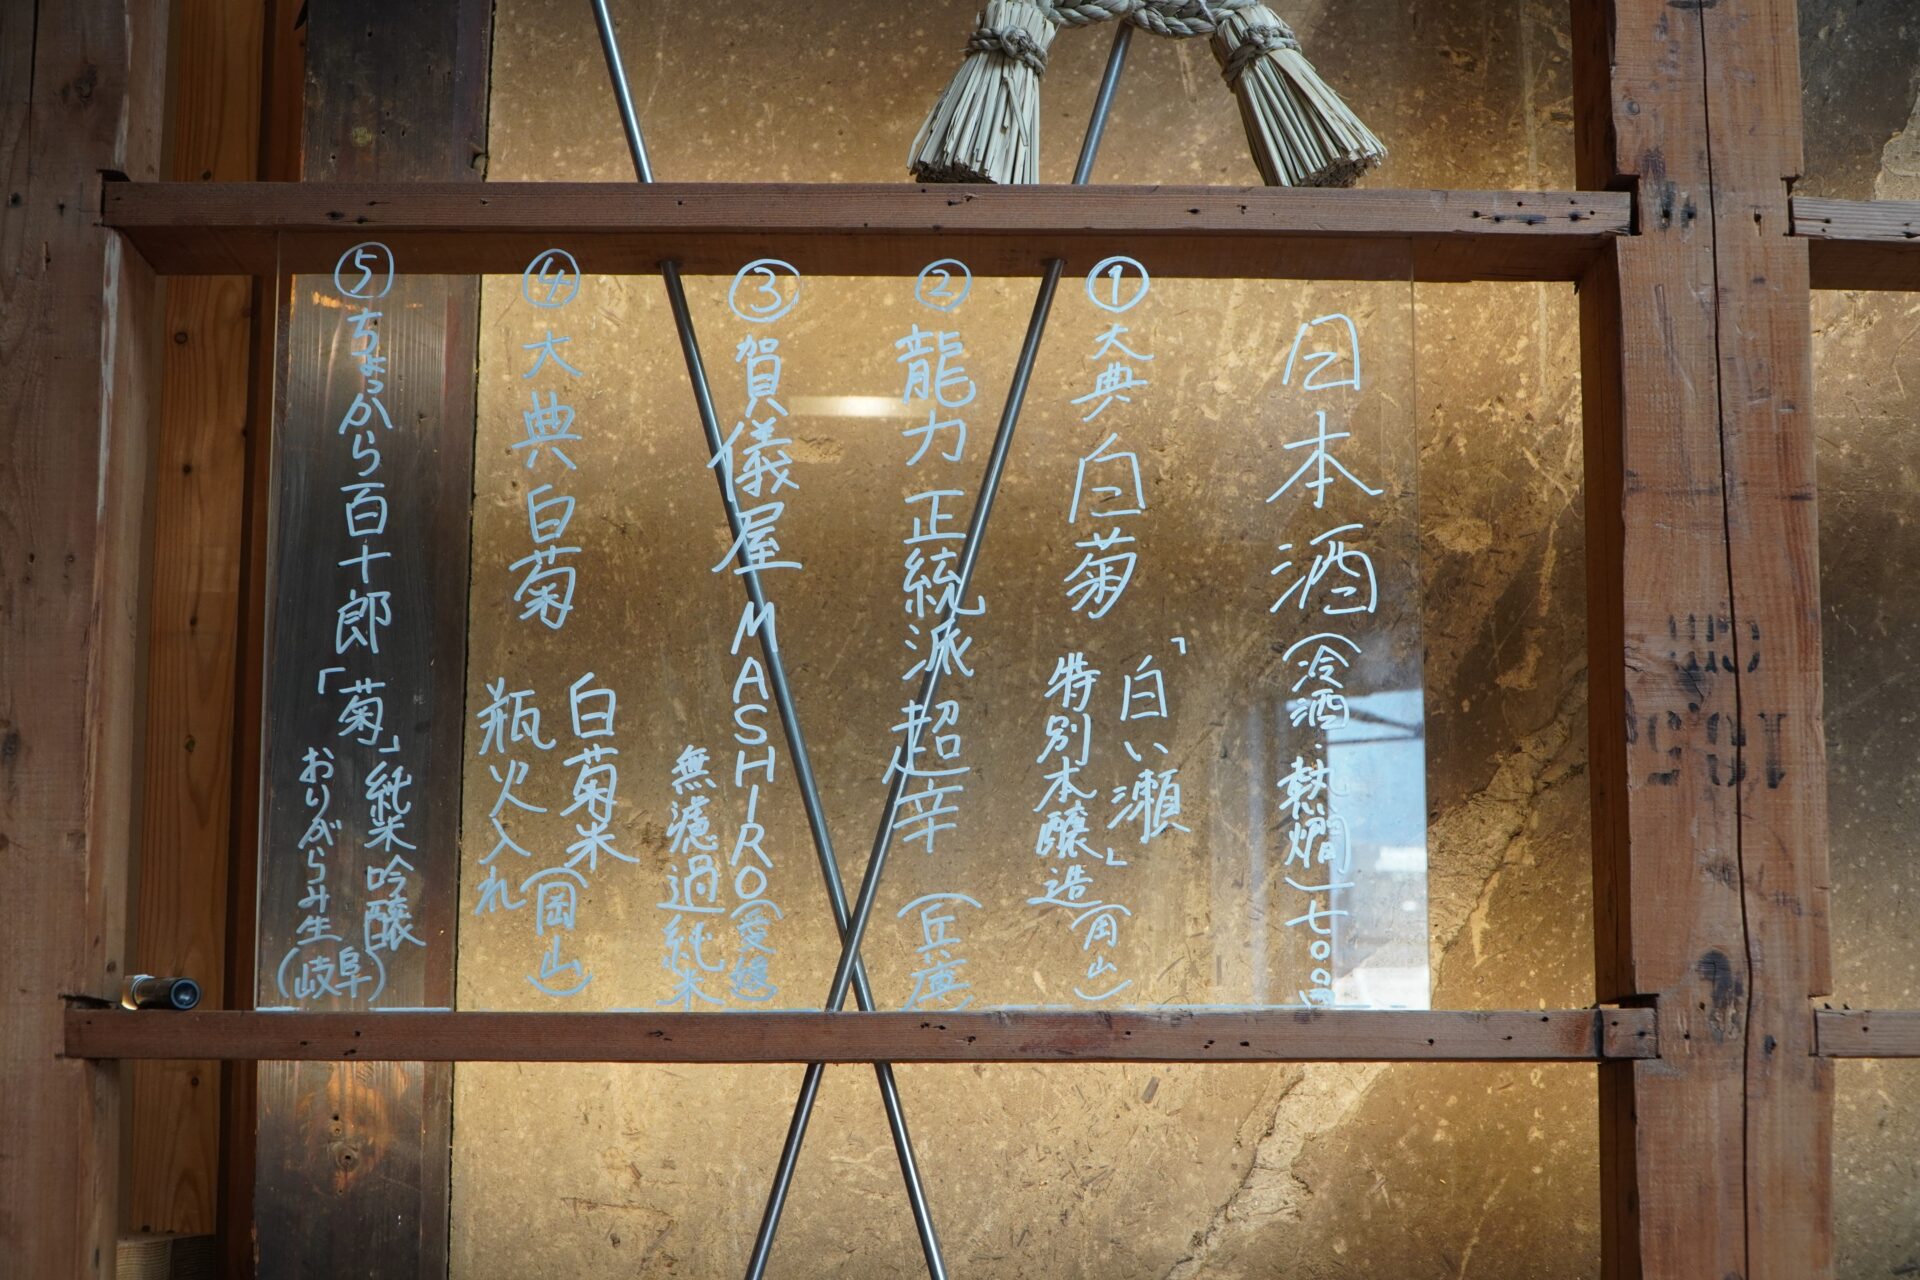 日本酒(冷酒・熱燗)七〇〇円
①大典白菊
「白い瀬」
特別本醸造(岡山)
②龍力 正統派 超辛 (兵庫)
③賀儀屋 MASHIRO(愛媛)
無濾過純米
④大典白菊
白菊米(岡山)
瓶火入れ
⑤ちょっから百十郎「菊」純米吟醸
おりがらみ生(岐阜)